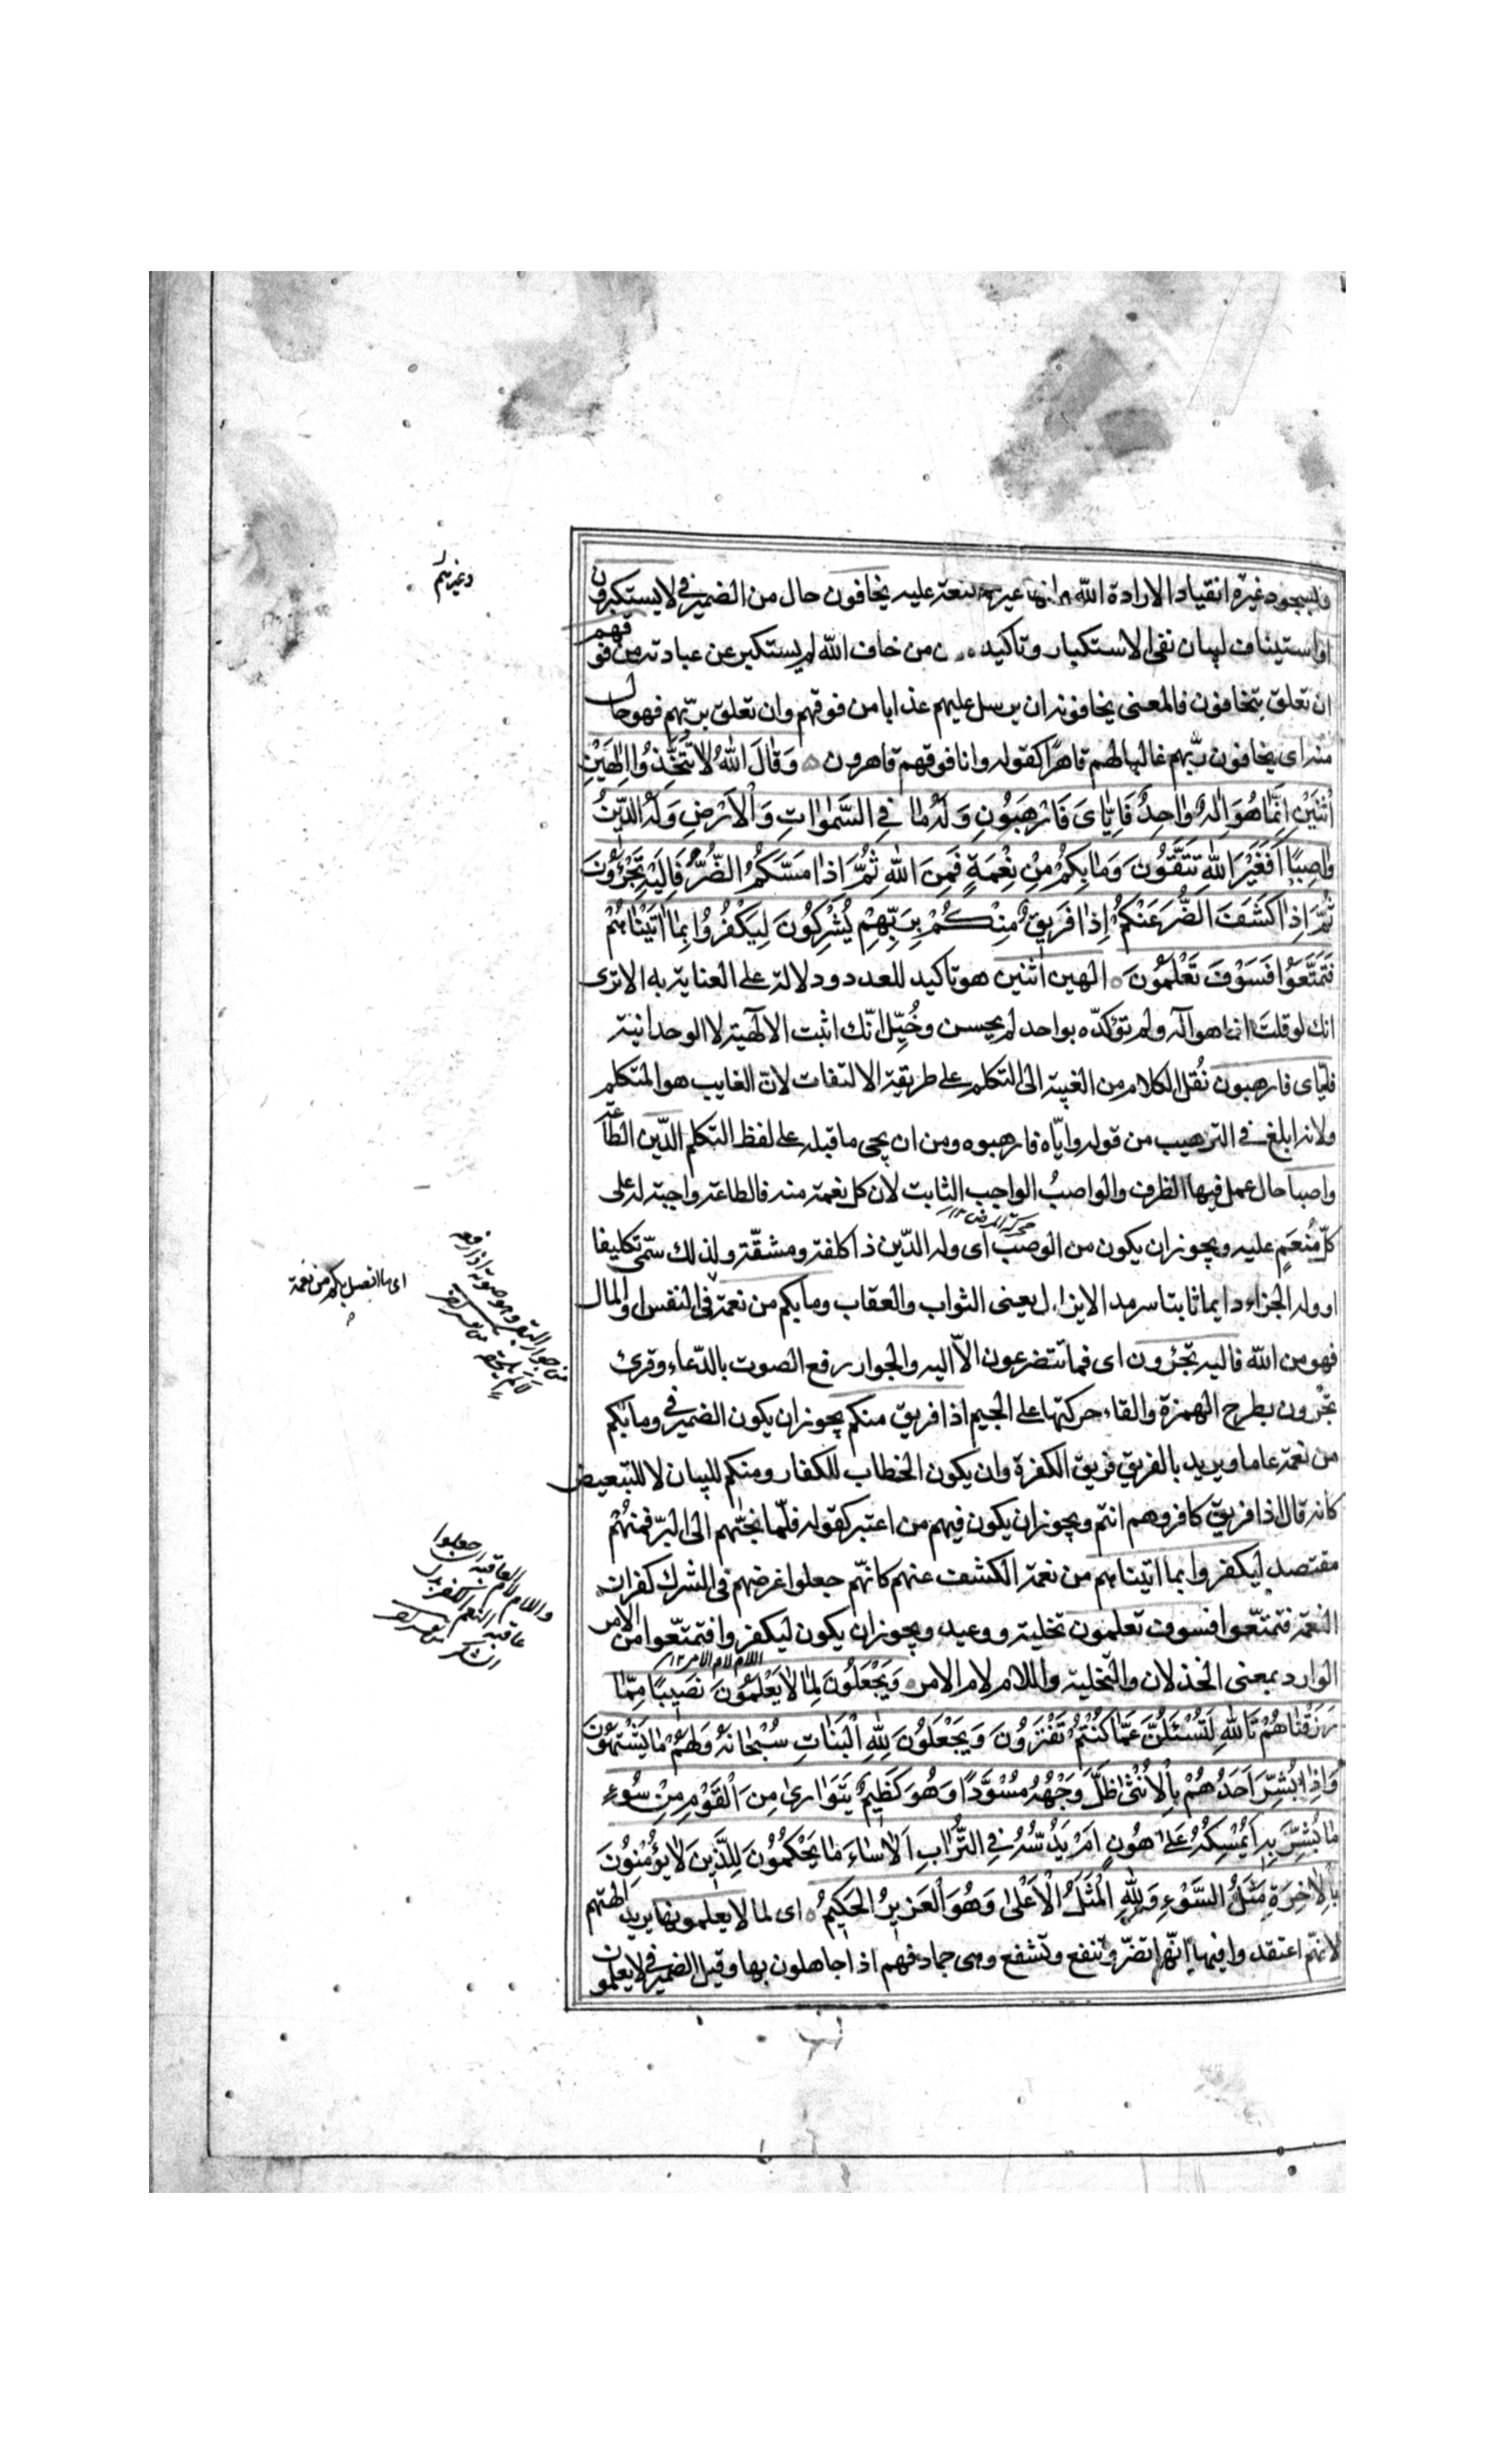 وسجود غيره انقياد لارادة الله وانها غير ممتنعة عليه يخافون حال من الضمير في لا يستكبرون
او استيناف لبيان نفى الاستكبار وتاكيده من خاف الله لم يستكبر عن عبادته من فوقهم
ان تعلق بيخافون فالمعنى يخافونه ان يرسل عليهم عذابا من فوقهم وان تعلق بربّهم فهو حال
منه اى يخافون ربّهم غالبا لهم قاهرًا كقوله وانا فوقهم قاهرون وَقَالَ اللهُ لَا تَتَّخِذُوا اِلٰهَيْنِ
اثْنَيْنِ اِنَّمَا هُوَ اِلٰهٌ وَاحِدٌ فَاِيَّاىَ فَارْهَبُونِ وَلَهُ مَا فِى السَّمٰوَاتِ وَالْاَرْضِ وَلَهُ الدِّينُ
وَاصِبًا اَفَغَيْرَ اللهِ تَتَّقُونَ وَمَا بِكُمْ مِنْ نِعْمَةٍ فَمِنَ اللهِ ثُمَّ اِذَا مَسَّكُمُ الضُّرُّ فَاِلَيْهِ تَجْئَرُونَ
ثُمَّ اِذَا كَشَفَ الضُّرَّ عَنْكُمْ اِذَا فَرِيقٌ مِنْكُمْ بِرَبِّهِمْ يُشْرِكُونَ لِيَكْفُرُوا بِمَا اٰتَيْنَاهُمْ
فَتَمَتَّعُوا فَسَوْفَ تَعْلَمُونَ الهين اثنين هو تاكيد للعدد ودلالة على العناية به الا ترى
انك لو قلت انما هو اله ولم تؤكّده بواحد لم يحسن وخُيّل انّك اثبت الالٓهية لا الوحدانية
فايّاى فارهبون نُقل الكلام من الغيبة الى التكلم على طريقة الالتفات لانّ الغايب هو المتكلم
ولانه ابلغ فى الترهيب من قوله وايّاه فارهبوه ومن ان يجى ما قبله على لفظ التكلم الدّين الطاعة
واصبا حال عمل فيها الظرف والواصبُ الواجب الثابت لان كل نعمة منه فالطاعة واجبة له على
كلّ مُنعَمٍ عليه ويجوز ان يكون من الوصب اى وله الدّين ذا كلفة ومشقّة ولذلك سمّى تكليفا
محركة المرض ١٢
او وله الجزاء دايما ثابتا سرمدا لا يزال يعنى الثواب والعقاب وما بكم من نعمة فى النفس والمال
فهو من الله فاليه تجئرون اى فما تتضرعون الّا اليه والجوار رفع الصوت بالدّعاء وقرئ
تجرون بطرح الهمزة والقاء حركتها على الجيم اذا فريق منكم يجوز ان يكون الضمير فى وما بكم
من نعمة عاما ويريد بالفريق فريق الكفرة وان يكون الخطاب للكفار ومنكم للبيان لا للتبعيض
كانه قال اذا فريق كافروهم انتم ويجوز ان يكون فيهم من اعتبر كقوله فلّما نجّٰهم الى البرّ فمنهُم
مقتصد ليكفروا بما اتيناهم من نعمة الكشف عنهم كانّهم جعلوا غرضهم فى الشرك كفران
النعمة فتمتّعوا فسوف تعلمون تخلية ووعيد ويجوز ان يكون ليكفروا فتمتّعوا من الامر
اللام لام الامر ١٢
الوارد بمعنى الخذلان والتخلية واللام لام الامر وَيَجْعَلُونَ لِمَا لَا يَعْلَمُونَ نَصِيبًا مِمَّا
رَزَقْنَاهُمْ تَاللهِ لَتُسْئَلُنَّ عَمَّا كُنْتُمْ تَفْتَرُونَ وَيَجْعَلُونَ لِلّٰهِ الْبَنَاتِ سُبْحَانَهُ وَلَهُمْ مَا يَشْتَهُونَ
وَاِذَا بُشِّرَ اَحَدُهُمْ بِالْاُنْثٰى ظَلَّ وَجْهُهُ مُسْوَدًّا وَهُوَ كَظِيمٌ يَتَوَارٰى مِنَ الْقَوْمِ مِنْ سُوءِ
مَا بُشِّرَ بِهِ اَيُمْسِكُهُ عَلٰى هُونٍ اَمْ يَدُسُّهُ فِى التُّرَابِ اَلَا سَاءَ مَا يَحْكُمُونَ لِلَّذِينَ لَا يُؤْمِنُونَ
بِالْاٰخِرَةِ مَثَلُ السَّوْءِ وَلِلّٰهِ الْمَثَلُ الْاَعْلٰى وَهُوَ الْعَزِيزُ الْحَكِيمُ اى لما لا يعلمونها يريد الهتهم
لانهّم اعتقدوا فيها انّها تضرّ وتنفع وتشفع وهى جماد فهم اذا جاهلون بها وقيل الضمير فى لا يعلمون
وغيرهم
اى ما اتصل بكم من نعمة
واللام لام العاقبة اى جعلوا
عاقبة النعم الكفر بدل
الشكر